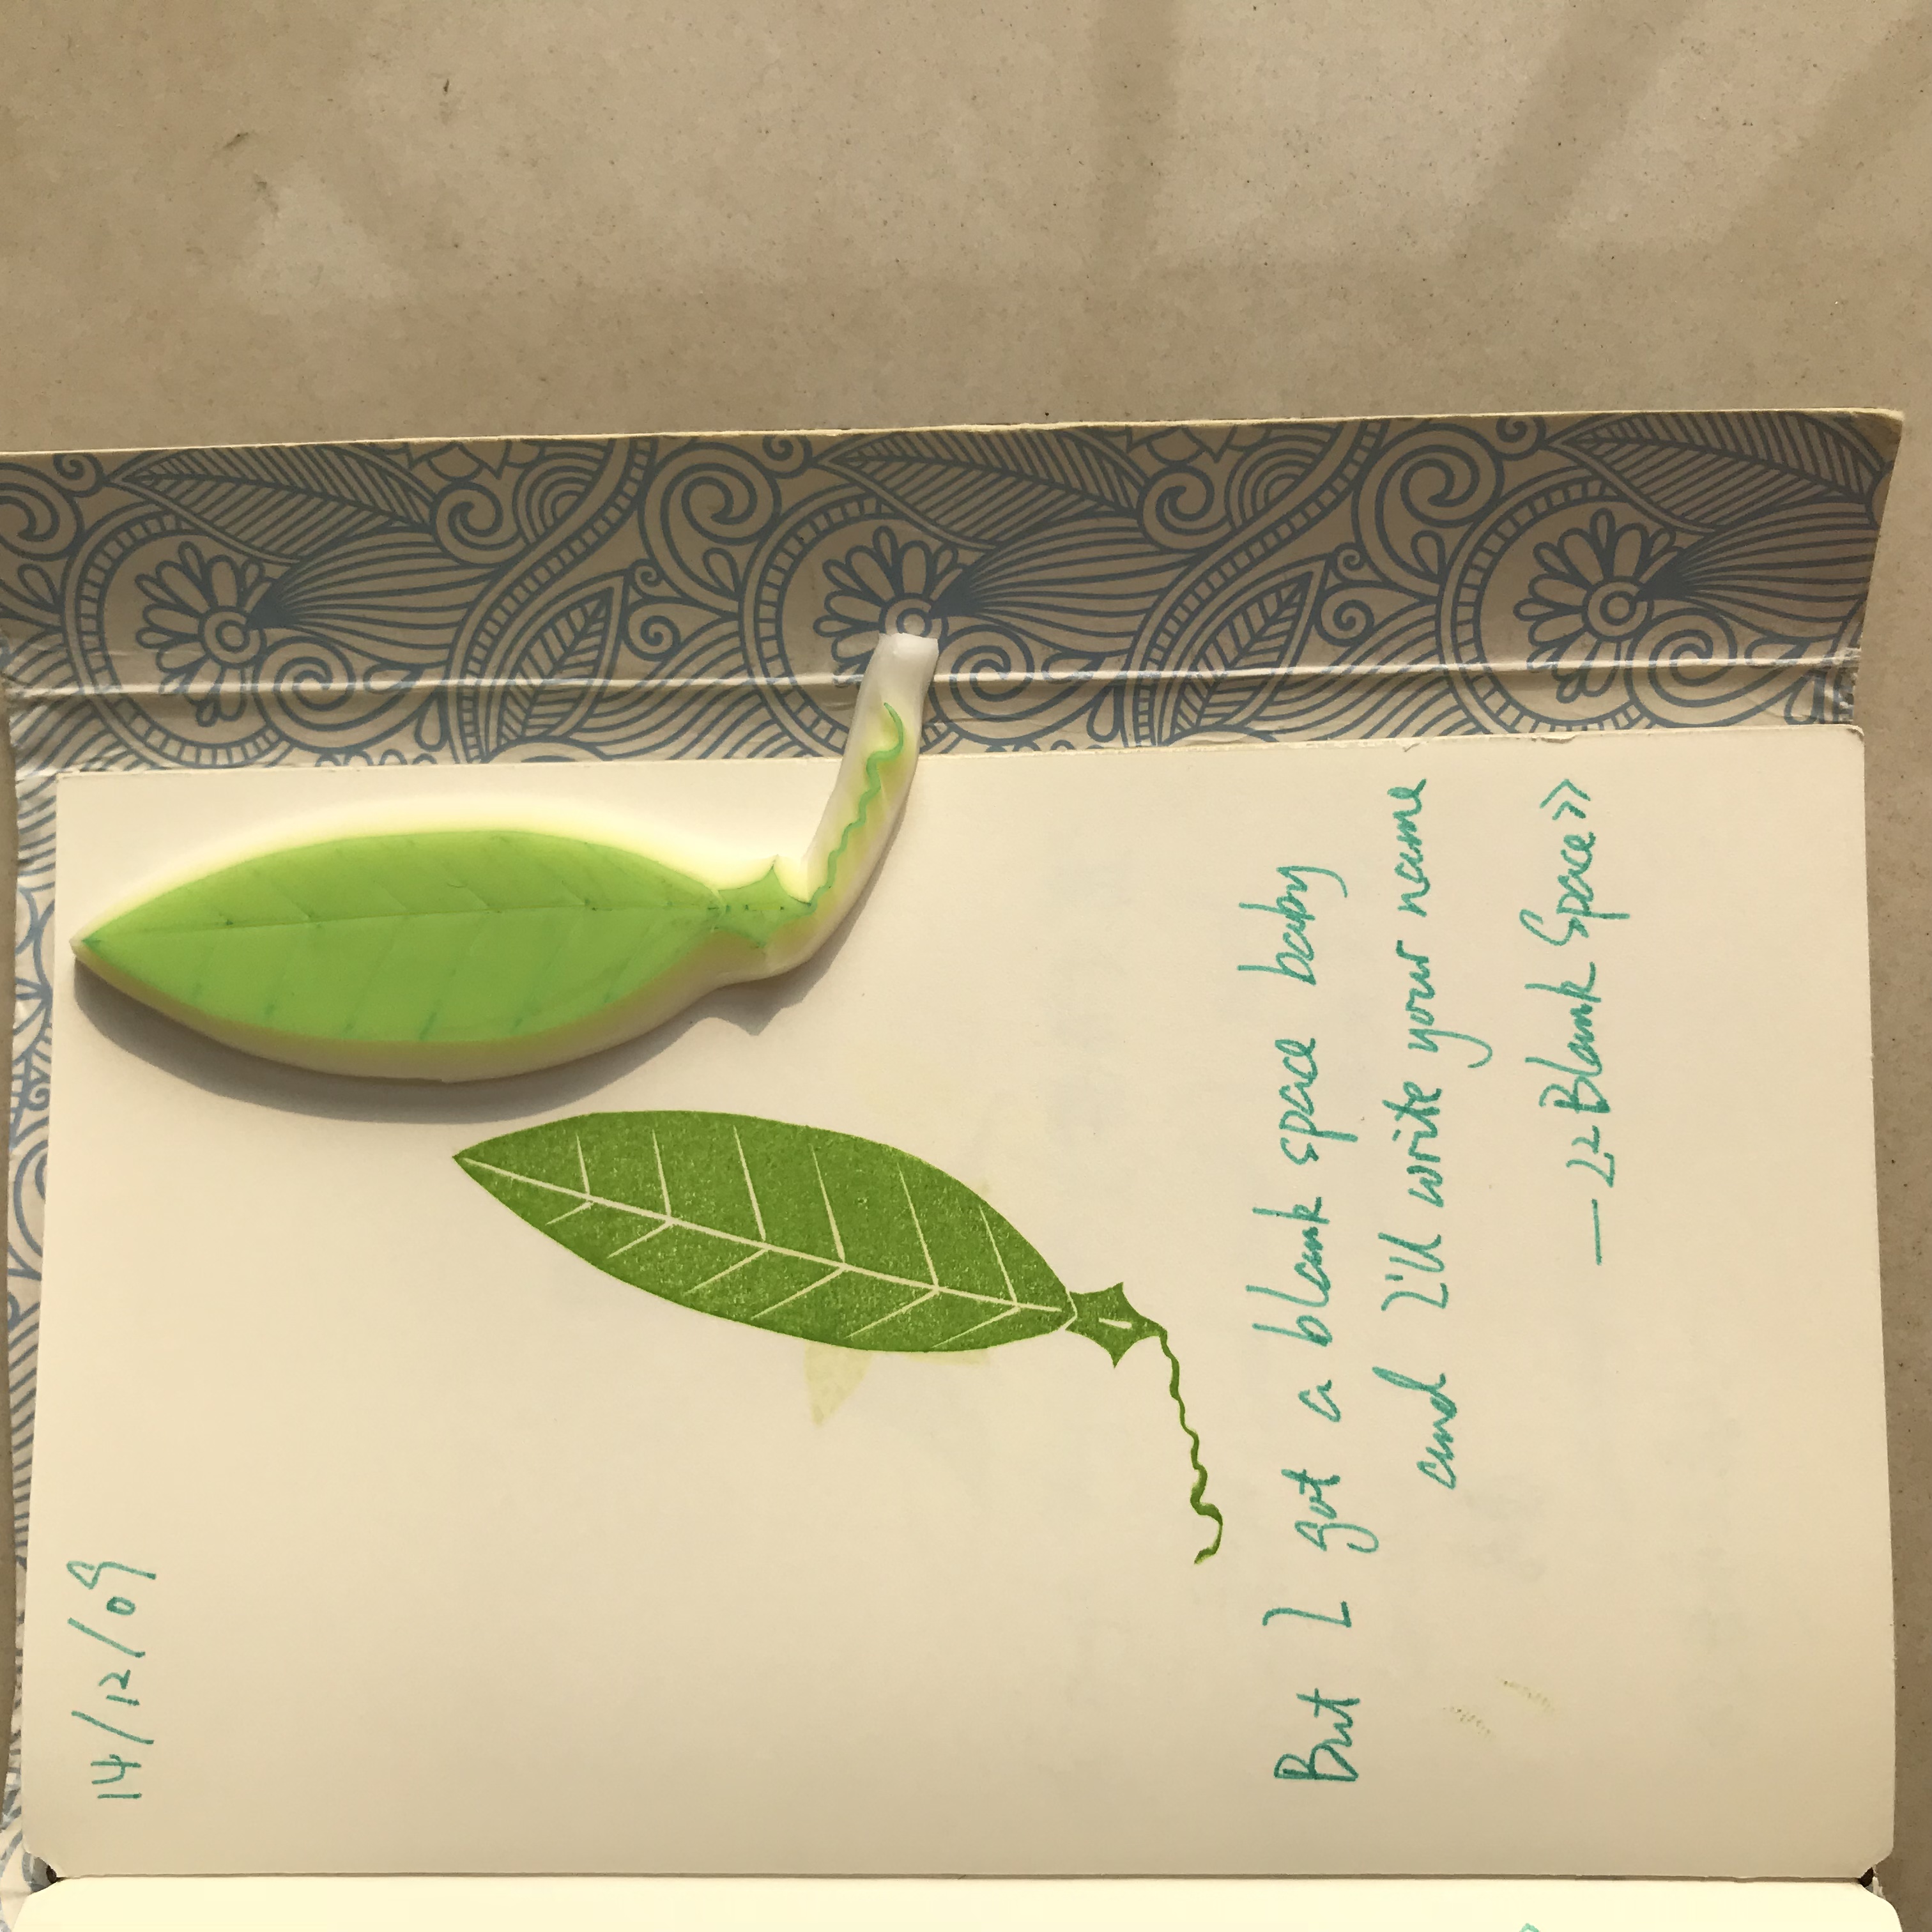 14/12/09
But I got a blank space baby
and I'll write your name
—《Blank Space》